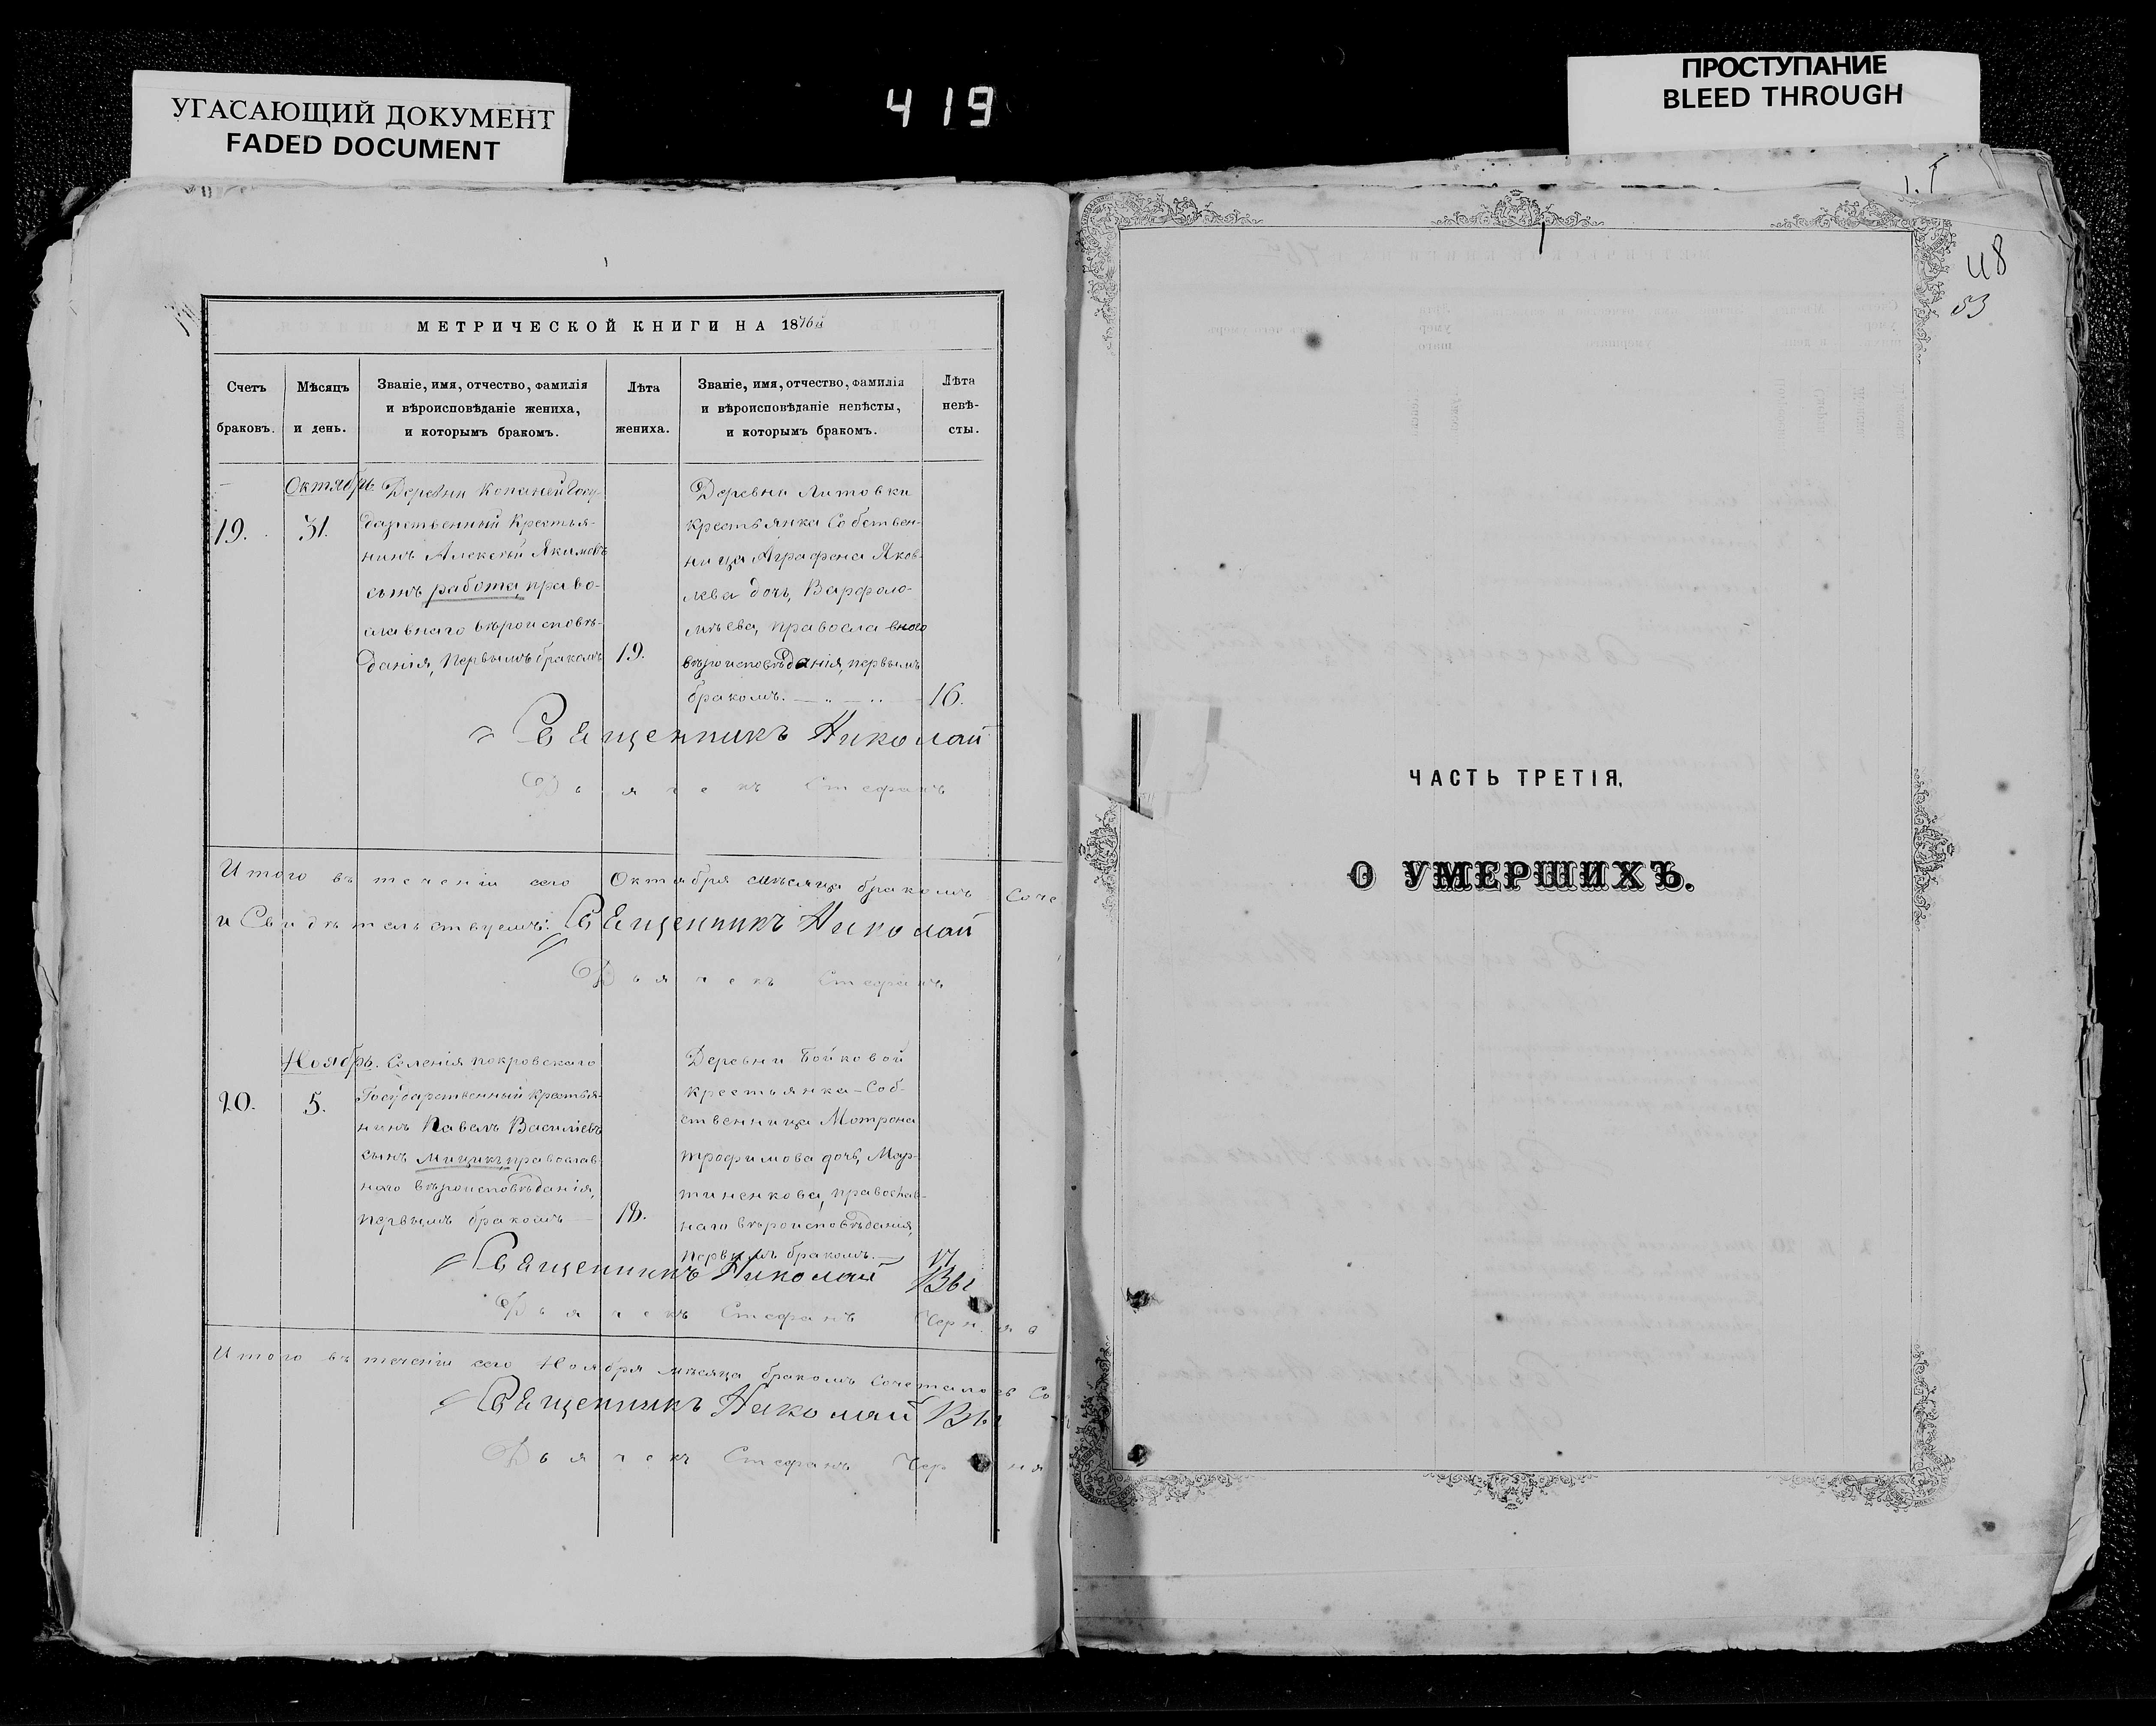 УГАСАЮЩИЙ ДОКУМЕНТ
FADED DOCUMENT
419
ПРОСТУПАНИЕ
BLEED THROUGH
МЕТРИЧЕСКОЙ КНИГИ НА 1876й
Счетъ браковъ.
Мѣсяцъ и день.
Званіе, имя, отчество, фамилія
и вѣроисповѣданіе жениха,
и которымъ бракомъ.
Лѣта жениха.
Званіе, имя, отчество, фамилія
и вѣроисповѣданіе невѣсты,
и которымъ бракомъ.
Лѣта невѣ-
сты.
19.
Октябрь
31.
Деревни Копаней Госу-
дарственный Крестья-
нинъ Алексѣй Якимовъ
сынъ работа, право-
славнаго вѣроисповѣ-
данія, первымъ бракомъ
19.
Деревни Литовки
крестьянка Собствен-
ница Аграфена Яков-
лева дочь, Варфоло-
мѣева, православнаго
вѣроисповѣданія, первымъ
бракомъ.
16.
Священникъ Николай
Дьячекъ Стефанъ
Итого въ теченіи сего Октября мѣсяца бракомъ Соче
и Свидѣтельствуемъ: Священникъ Николай
Дьячекъ Стефанъ
20.
Ноябрь.
5.
Селенія покровскаго
Государственный крестья-
нинъ Павелъ Василіевъ
сынъ Мицикъ, православ-
наго вѣроисповѣданія,
первымъ бракомъ
18.
Деревни Бойковой
крестьянка-Соб-
ственница Мотрона
трофимова дочь, Мар-
тиненкова, православ-
наго вѣроисповѣданія,
первымъ бракомъ.
17
Священникъ Николай Вы
Дьячекъ Стефанъ Черня
Итого въ теченіи сего Ноября мѣсяца бракомъ Сочеталось Со
Священникъ Николай Вы
Дьячекъ Стефанъ Черня
48
53
ЧАСТЬ ТРЕТІЯ,
О УМЕРШИХЪ.